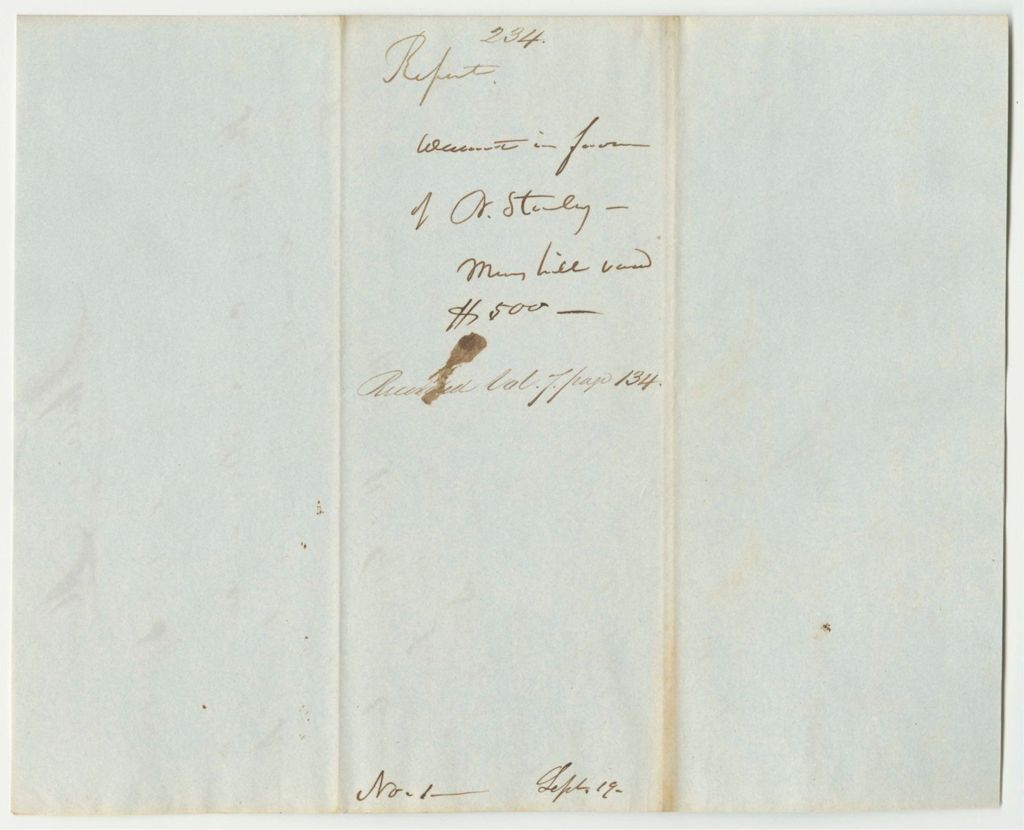 234.
Report.
Warrant in favor
of N. Stanley —
Mars hill road
$500 —
Recorded Vol. 7. page 134.
No. 1 — Sept. 19 -